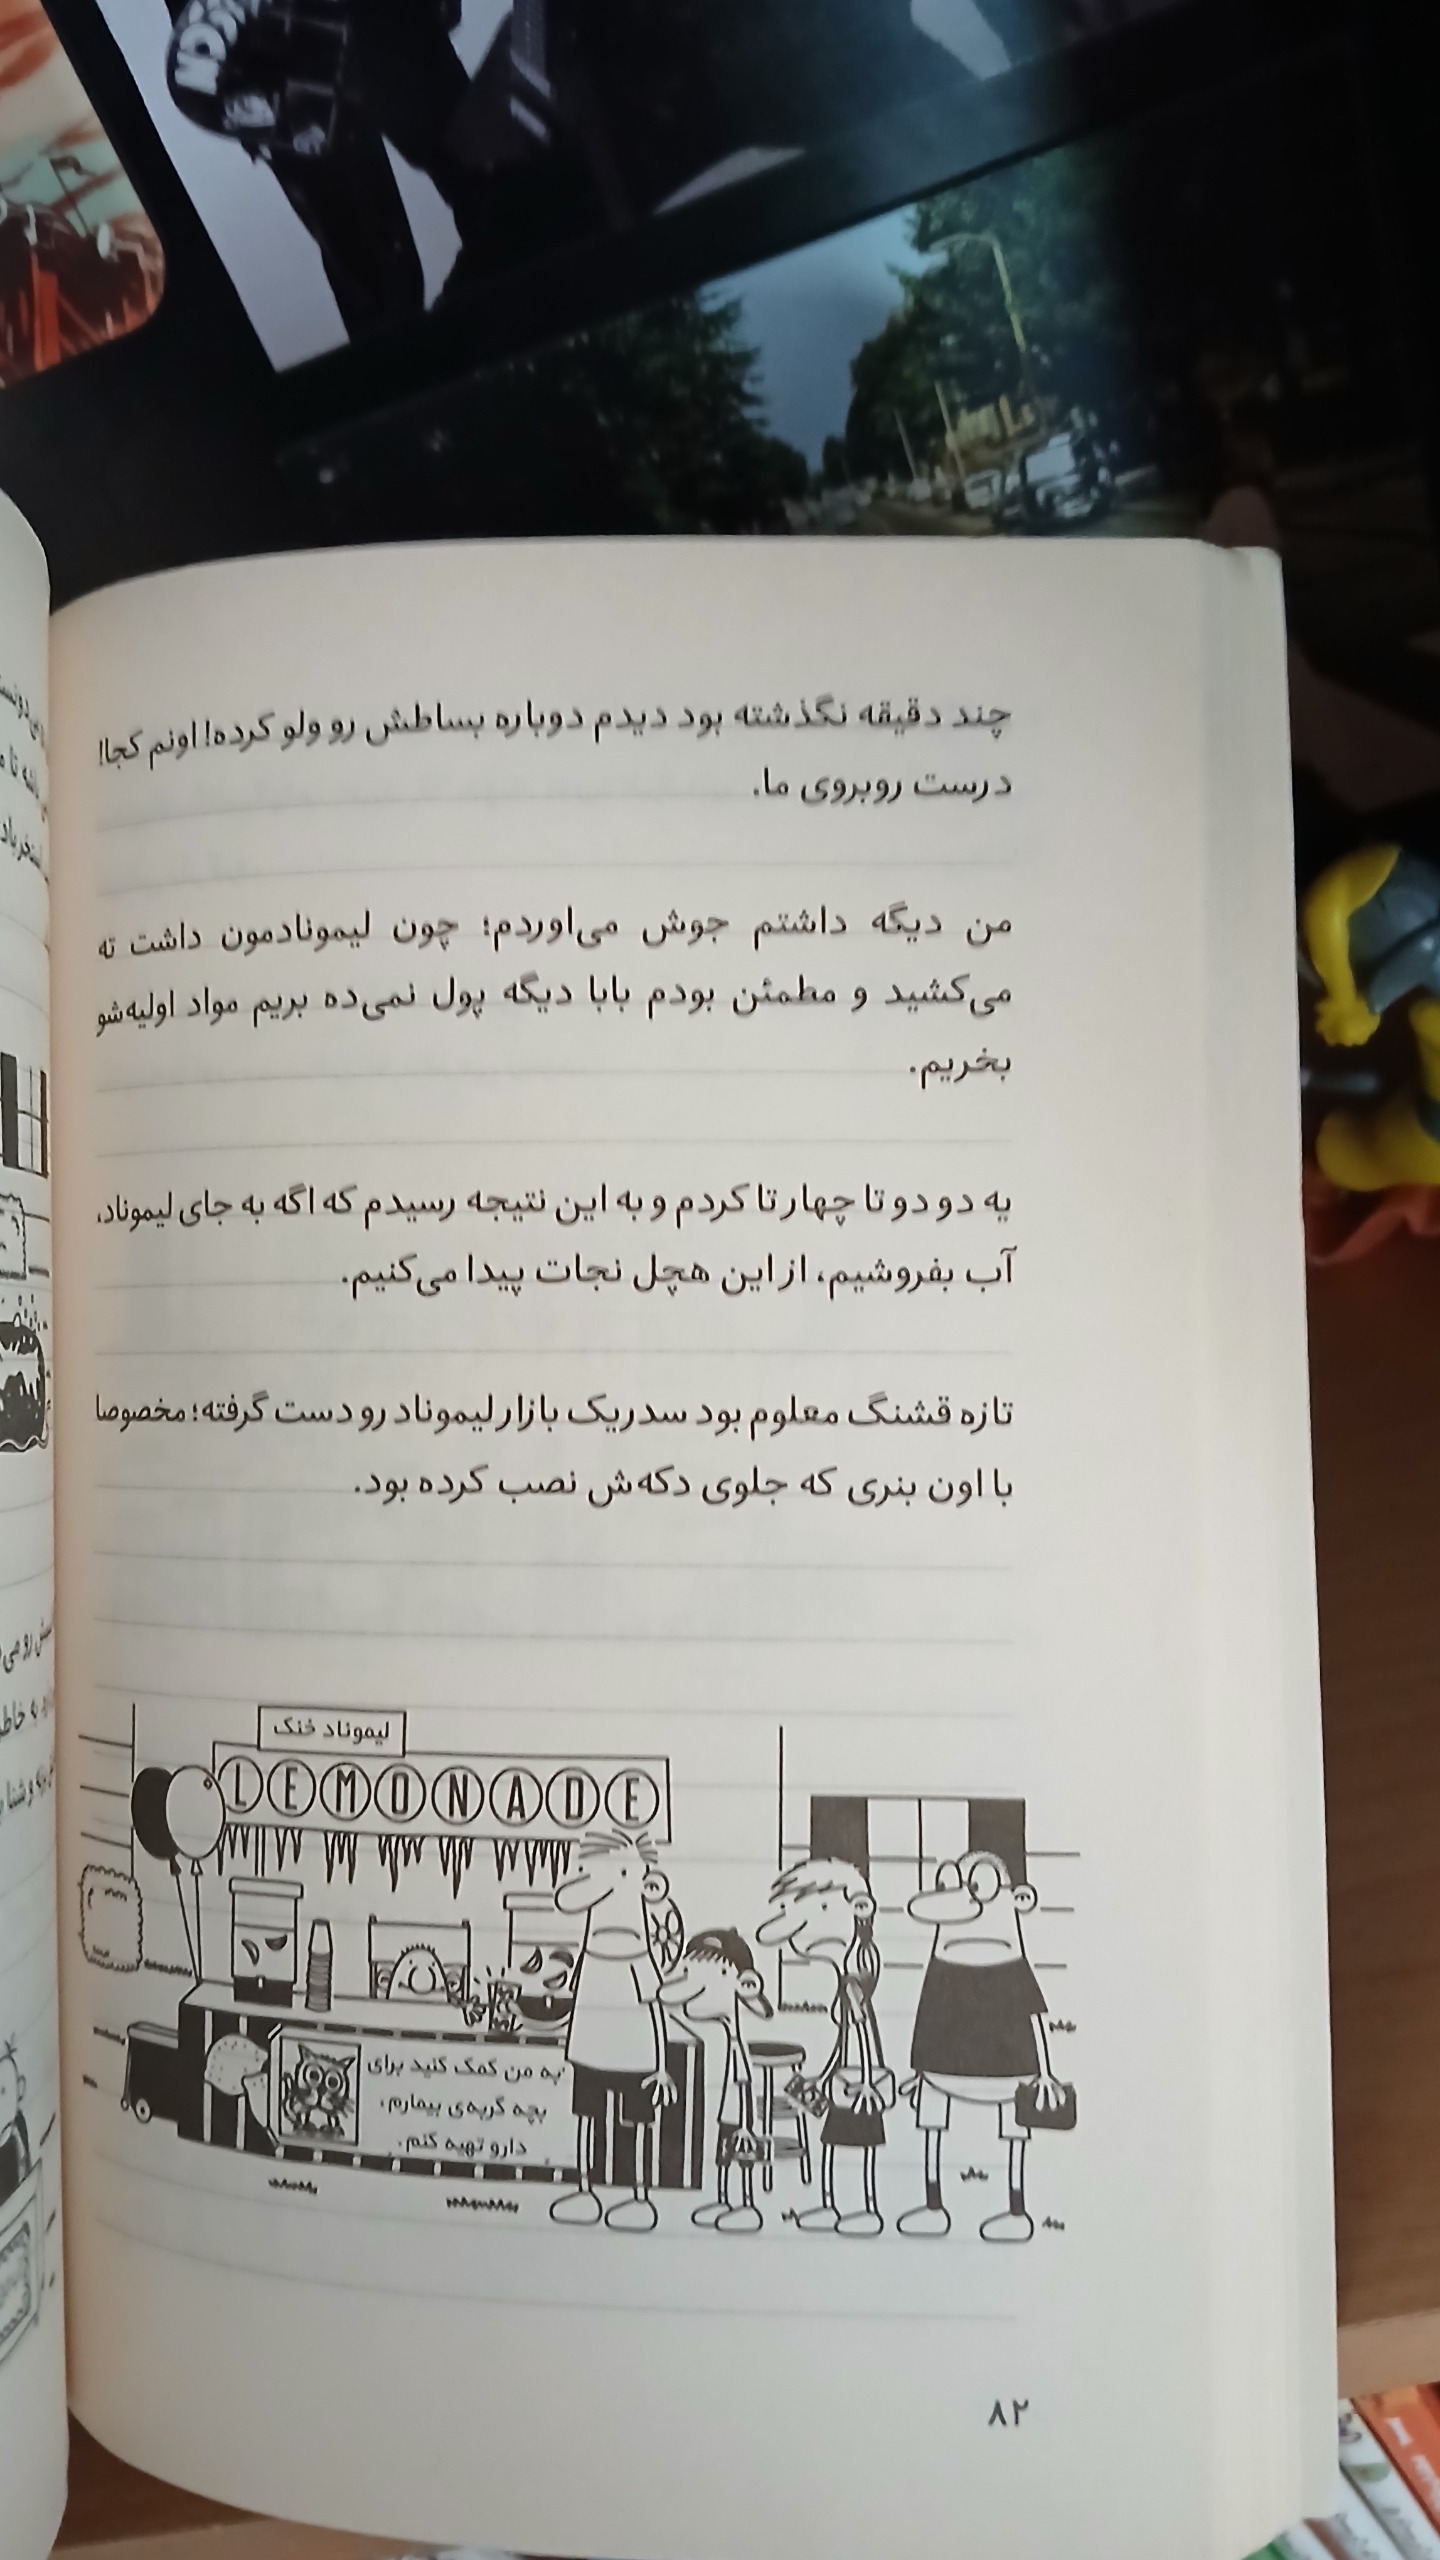 چند دقیقه نگذشته بود دیدم دوباره بساطش رو ولو کرده! اونم کجا!
درست روبروی ما.
من دیگه داشتم جوش می‌اوردم؛ چون لیمونادمون داشت ته
می‌کشید و مطمئن بودم بابا دیگه پول نمی‌ده بریم مواد اولیه‌شو
بخریم.
یه دو دو تا چهار تا کردم و به این نتیجه رسیدم که اگه به جای لیموناد،
آب بفروشیم، از این هچل نجات پیدا می‌کنیم.
تازه قشنگ معلوم بود سدریک بازار لیموناد رو دست گرفته؛ مخصوصا
با اون بنری که جلوی دکه‌ش نصب کرده بود.
لیموناد خنک
LEMONADE
به من کمک کنید برای
بچه گربه‌ی بیمارم،
دارو تهیه کنم.
۸۲